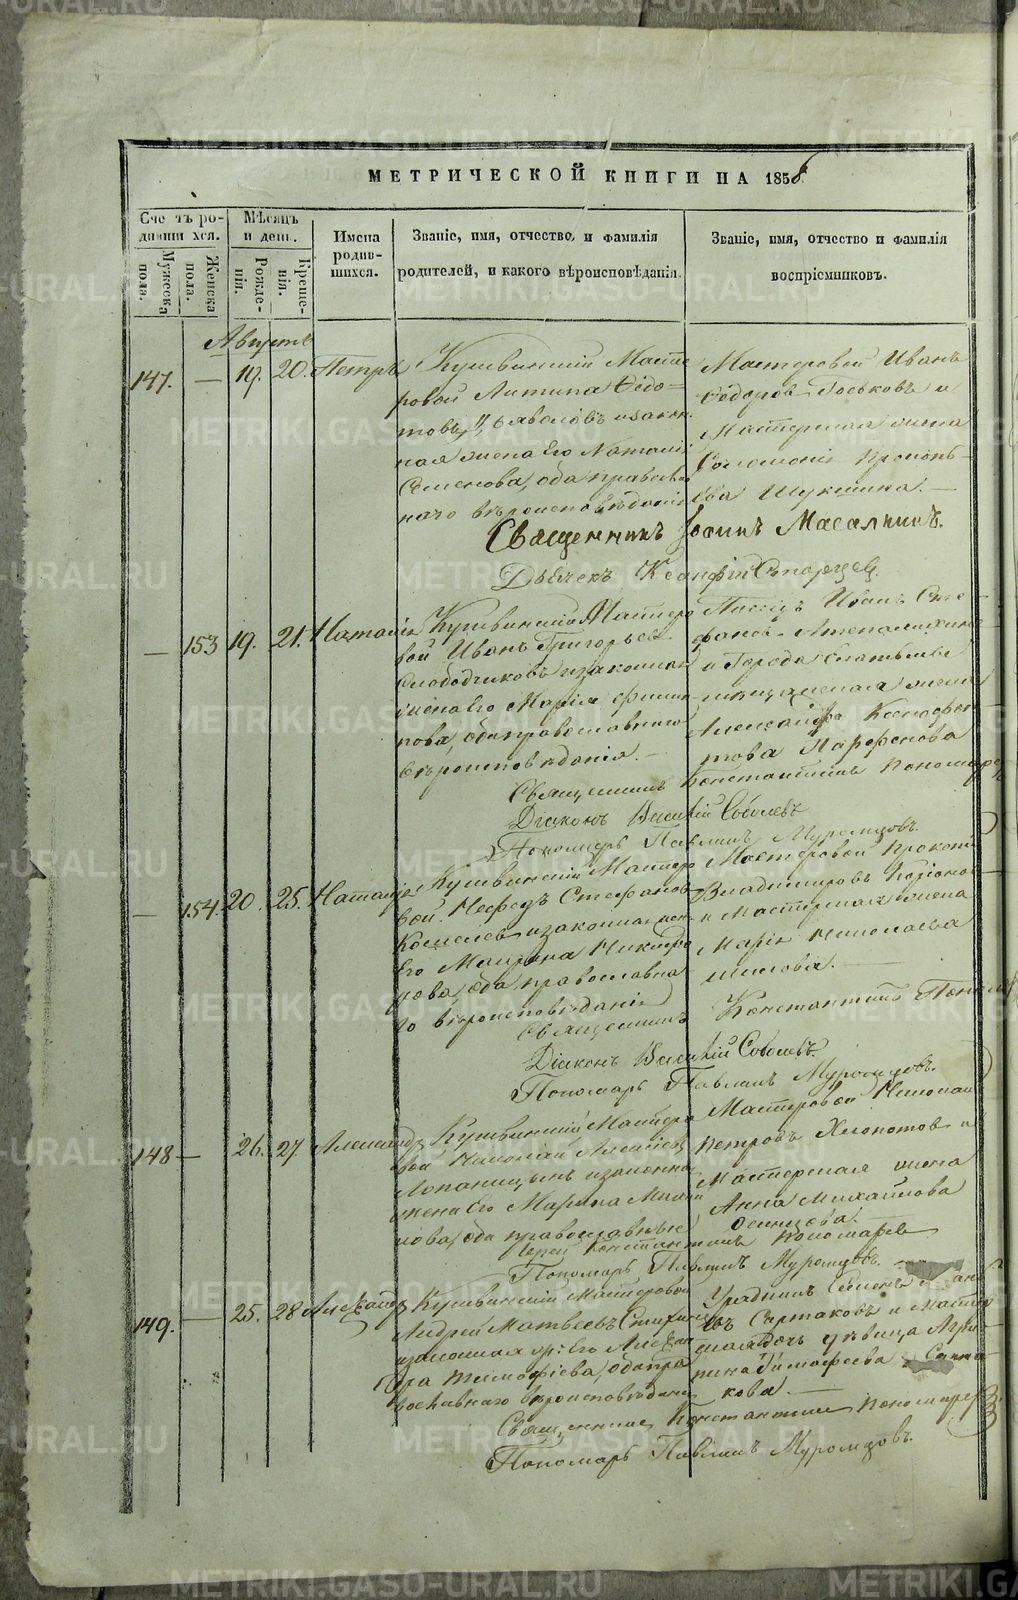 МЕТРИЧЕСКОЙ КНИГИ НА 1858
Счетъ родившихся.
Мужеска пола.
Женска пола.
Мѣсяцъ и день.
Рожденія.
Крещенія.
Имена родившихся.
Званіе, имя, отчество, и фамилія
родителей, и какого вѣроисповѣданія.
Званіе, имя, отчество и фамилія
воспріемниковъ.
Августъ
147. — 19. 20. Петръ
Кушвинскій Масте
ровой Антипа Ѳедо=
товъ
ная жена Его Наталія
Семенова, оба православ
наго вѣроисповѣданія
Мастеровой Иванъ
Ѳедоров Госьковъ и
Мастерская жена
Соломонія Прокопь
ева Щукина. —
Священникъ Іоаннъ Масалкинъ.
Дьячекъ Старцев.
— 153 19. 21. Наталія
Кушвинскій Мастеро
вой Иванъ Григорьев
Слободчиковъ и законная
жена Его Марія Филип
пова, оба православнаго
вѣроисповѣданія. —
Иванъ Сте
фанов
и Города
жена
Александра Ксенофон
това Парфенова
Священникъ Константинъ Пономарев
Діаконъ Василій Соболевъ
Пономарь Павлинъ Муромцовъ.
— 154. 20. 25. Наталія
Кушвинскій Мастеро
вой Стефанов
Кошелев и законная жена
Его Марина Никифо
рова, оба православна
го вѣроисповѣданія
Мастеровой Прокопій
Владимировъ
и Мастерская жена
Марія Николаева
Шилова. —
Священникъ Константинъ Поном
Діаконъ Василій Соболевъ.
Пономарь Павлинъ Муромцовъ.
148 — 26. 27. Александръ
Кушвинскій Мастеро
вой Николай Алексѣев
Лопаницынъ и законна
жена Его Марина Михай
лова, оба православные
Мастеровой Николай
Петровъ Хлопотов и
Мастерская жена
Анна Михайлова
Осинцова.
Іерей Константинъ Пономарев
Пономарь Павлинъ Муромцовъ. —
149. — 25. 28 Александръ
Кушвинскій Мастеровой
Андрей Матвѣевъ
изаконная жена Его Алексан
дра Тимофѣева, оба пра
вославнаго вѣроисповѣданія
Урядникъ Семенъ
въ Сартаковъ и Мастер
ская дочь дѣвица Агри
пина Тимофеева Сарта
кова —
Священникъ Константинъ Пономарев
Пономарь Павлинъ Муромцовъ.
METRIKI.GASO-URAL.RU